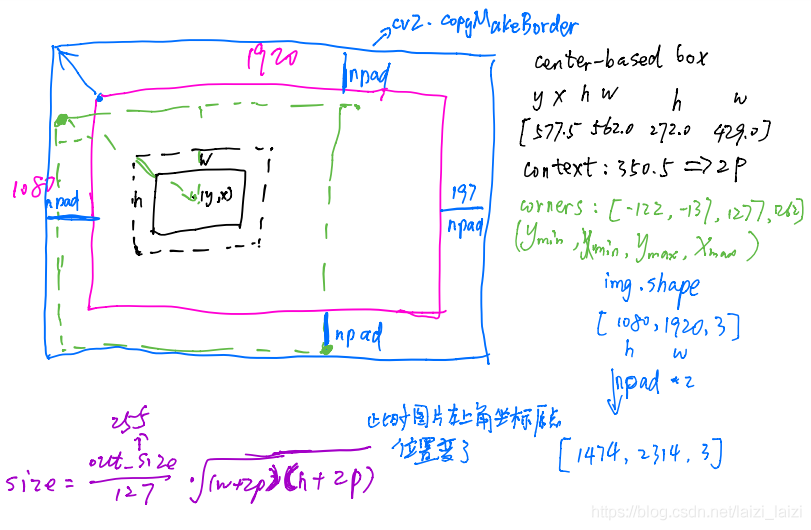 cv2.copyMakeBorder
1920
npad
1080
npad
w
h
(y,x)
197
npad
npad
center-based box
y x h w h w
[577.5 562.0 272.0 429.0]
context: 350.5 => 2P
corners: [-122, -137, 1277, 1262]
(ymin, xmin, ymax, xmax)
img.shape
[1080, 1920, 3]
h w
npad *2
[1474, 2314, 3]
此时图片左上角坐标原点
位置变了
255
out_size
size = 127 · √(w+2p)(h+2p)
https://blog.csdn.net/laizi_laizi